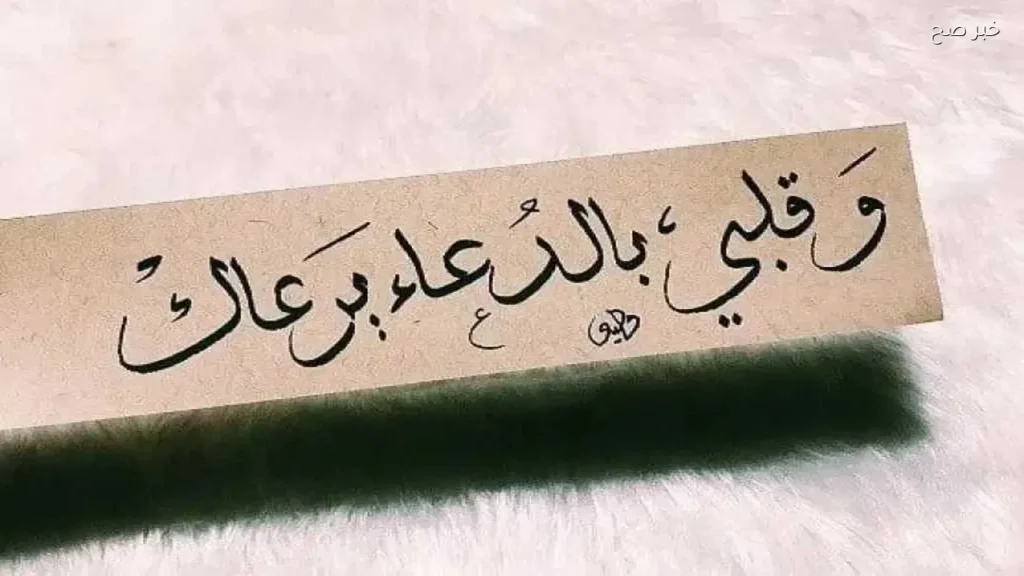 خبر صح
وَ قلبي بالدُعاء يرعاكْ